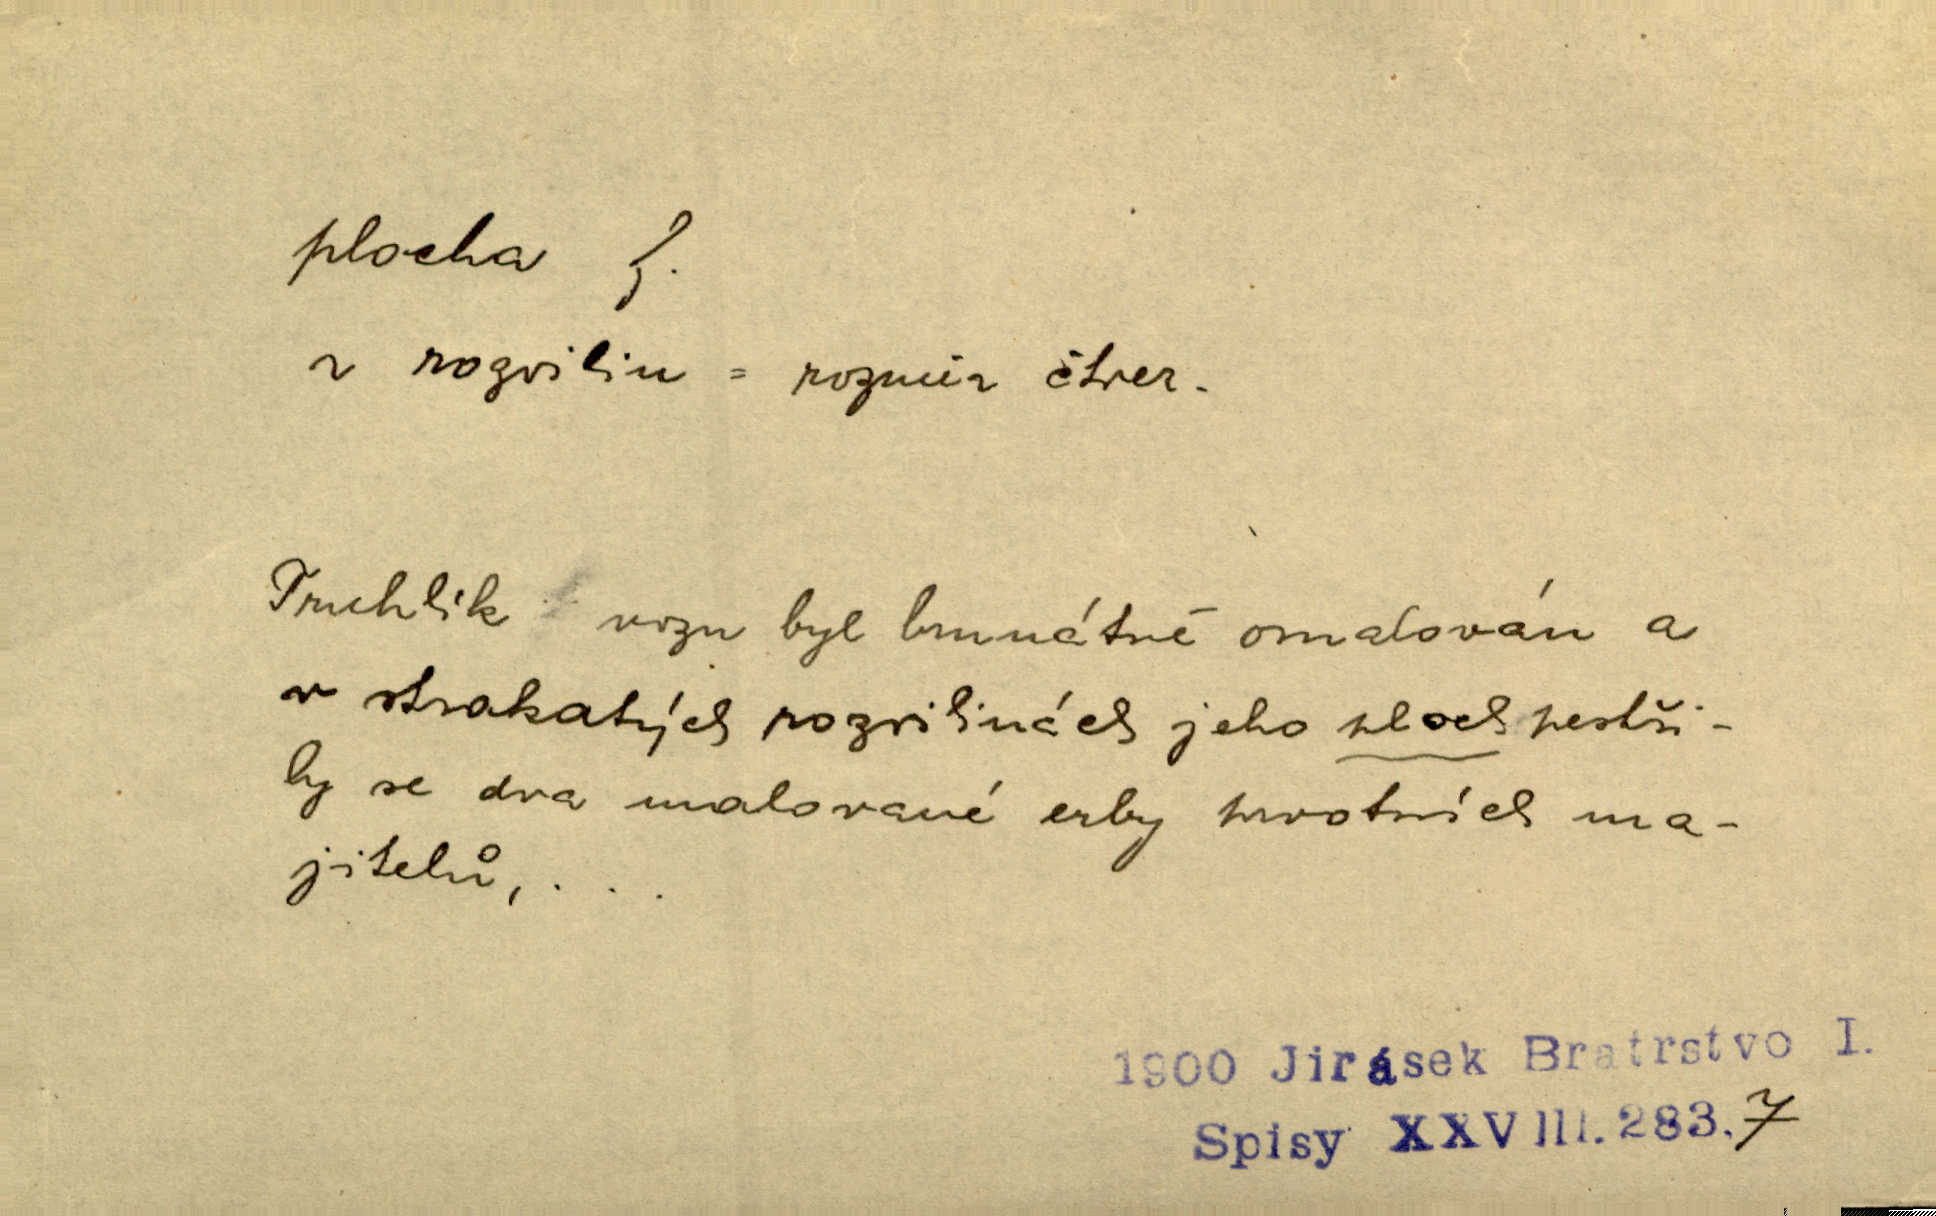 plocha f.
v rozvilin = rozměr čtver.
Truhlík vozu byl brunátně omalován a
v strakatých rozvilinách jeho ploch pestři-
ly se dva malované erby prvotních ma-
jitelů, . . .
1900 Jirásek Bratrstvo I.
Spisy XXVIII.283.7